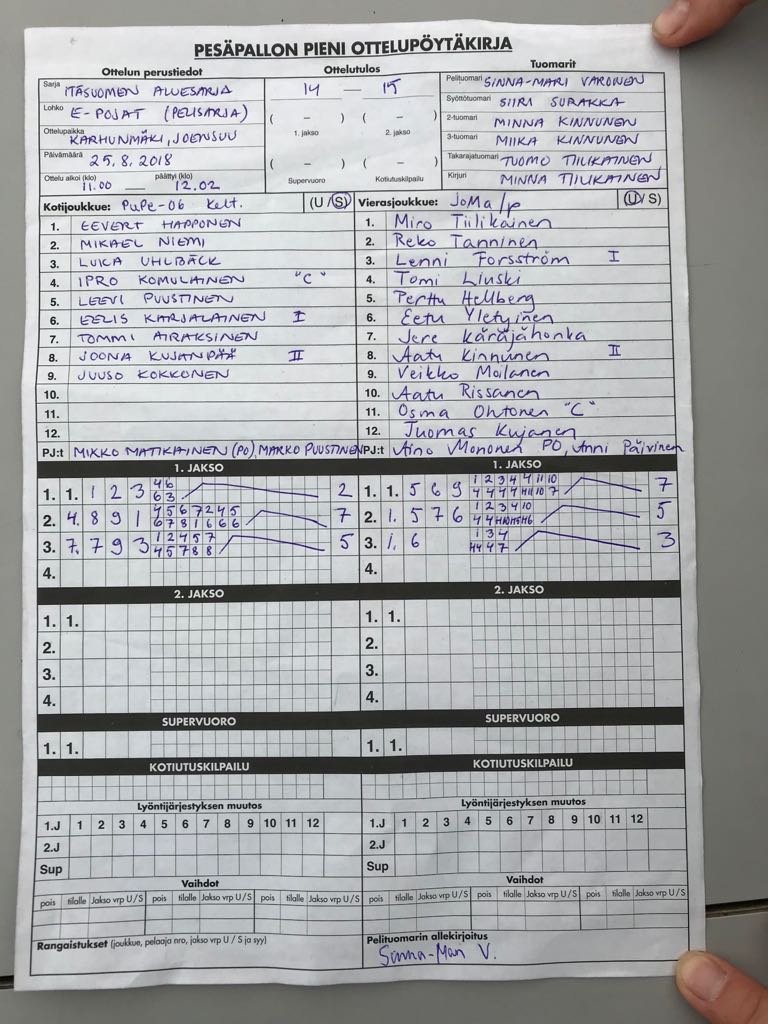 PESÄPALLON PIENI OTTELUPÖYTÄKIRJA
Ottelun perustiedot
Sarja ITÄSUOMEN ALUESARJA
Lohko E-POJAT (PELISARJA)
Ottelupaikka KARHUNMÄKI, JOENSUU
Päivämäärä 25.8.2018
Ottelu alkoi (klo) 11.00 — päättyi (klo) 12.02
Ottelutulos
14 — 15
( – ) ( – )
1. jakso 2. jakso
( – ) ( – )
Supervuoro Kotiutuskilpailu
Tuomarit
Pelituomari SINNA-MARI VARONEN
Syöttötuomari SIIRI SURAKKA
2-tuomari MINNA KINNUNEN
3-tuomari MIIKA KINNUNEN
Takarajatuomari TUOMO TIILIKAINEN
Kirjuri MINNA TIILIKAINEN
Kotijoukkue: PuPe-06 Kelt. (U / S)
1. EEVERT HAPPONEN
2. MIKAEL NIEMI
3. LUKA UHLBÄCK
4. IPRO KOMULAINEN "C"
5. LEEVI PUUSTINEN
6. EELIS KARJALAINEN I
7. TOMMI AIRAKSINEN
8. JOONA KUJANPÄÄ II
9. JUUSO KOKKONEN
10.
11.
12.
PJ:t MIKKO MATIKAINEN (PO), MARKO PUUSTINEN
Vierasjoukkue: JoMa/p (U / S)
1. Miro Tiilikainen
2. Reko Tanninen
3. Lenni Forsström I
4. Tomi Liuski
5. Perttu Hellberg
6. Eetu Yletyinen
7. Jere Käräjähonka
8. Aatu Kinnunen II
9. Veikko Moilanen
10. Aatu Rissanen
11. Osma Ohtonen "C"
12. Tuomas Kujanen
PJ:t Aino Mononen PO, Anni Päivinen
1. JAKSO
1. 1. 1 2 3 4 6 2
6 3
2. 4. 8 9 1 4 5 6 7 2 4 5 7
6 7 8 1 6 6 6
3. 7. 7 9 3 1 2 4 5 7 5
4 5 7 8 8
4.
1. JAKSO
1. 1. 5 6 9 1 2 3 4 4 11 10 7
4 4 4 4 11 10 7
2. 1. 5 7 6 1 2 3 4 10 5
3. 1. 6 1 3 4 3
44 4 7
4.
2. JAKSO
1. 1.
2.
3.
4.
2. JAKSO
1. 1.
2.
3.
4.
SUPERVUORO
1. 1.
SUPERVUORO
1. 1.
KOTIUTUSKILPAILU
KOTIUTUSKILPAILU
Lyöntijärjestyksen muutos
1.J 1 2 3 4 5 6 7 8 9 10 11 12
2.J
Sup
Lyöntijärjestyksen muutos
1.J 1 2 3 4 5 6 7 8 9 10 11 12
2.J
Sup
Vaihdot
pois tilalle Jakso vrp U/S pois tilalle Jakso vrp U/S pois tilalle Jakso vrp U/S
Vaihdot
pois tilalle Jakso vrp U/S pois tilalle Jakso vrp U/S pois tilalle Jakso vrp U/S
Rangaistukset (joukkue, pelaaja nro, jakso vrp U / S ja syy)
Pelituomarin allekirjoitus
Sinna-Mari V.